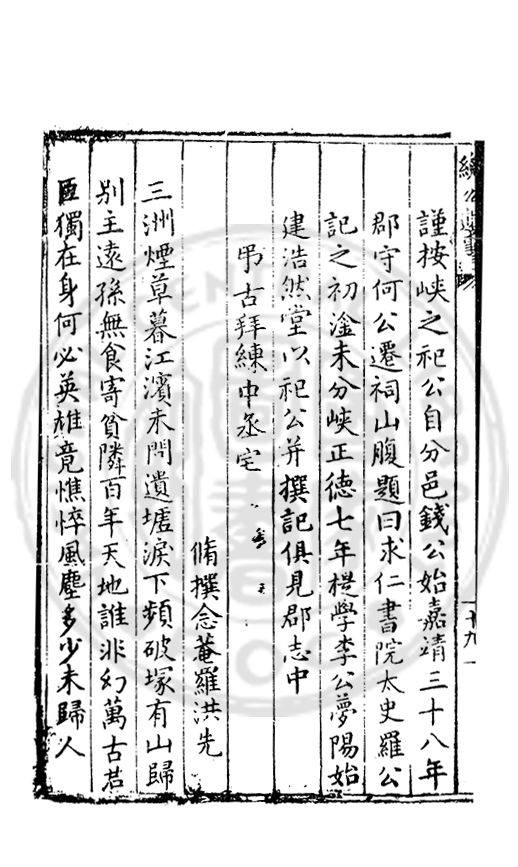 練公遺事
十九
謹按峽之祀公自分邑錢公始嘉靖三十八年
郡守何公遷祠山腹題曰求仁書院太史羅公
記之初淦未分峽正德七年提學李公夢陽始
建浩然堂以祀公并撰記俱見郡志中
弔古拜練中丞宅
脩撰念菴羅洪先
三洲煙草暮江濱未問遺墟淚下頻破塚有山歸
别主遠孫無食寄貧隣百年天地誰非幻萬古君
臣獨在身何必英雄竟憔悴風塵多少未歸人